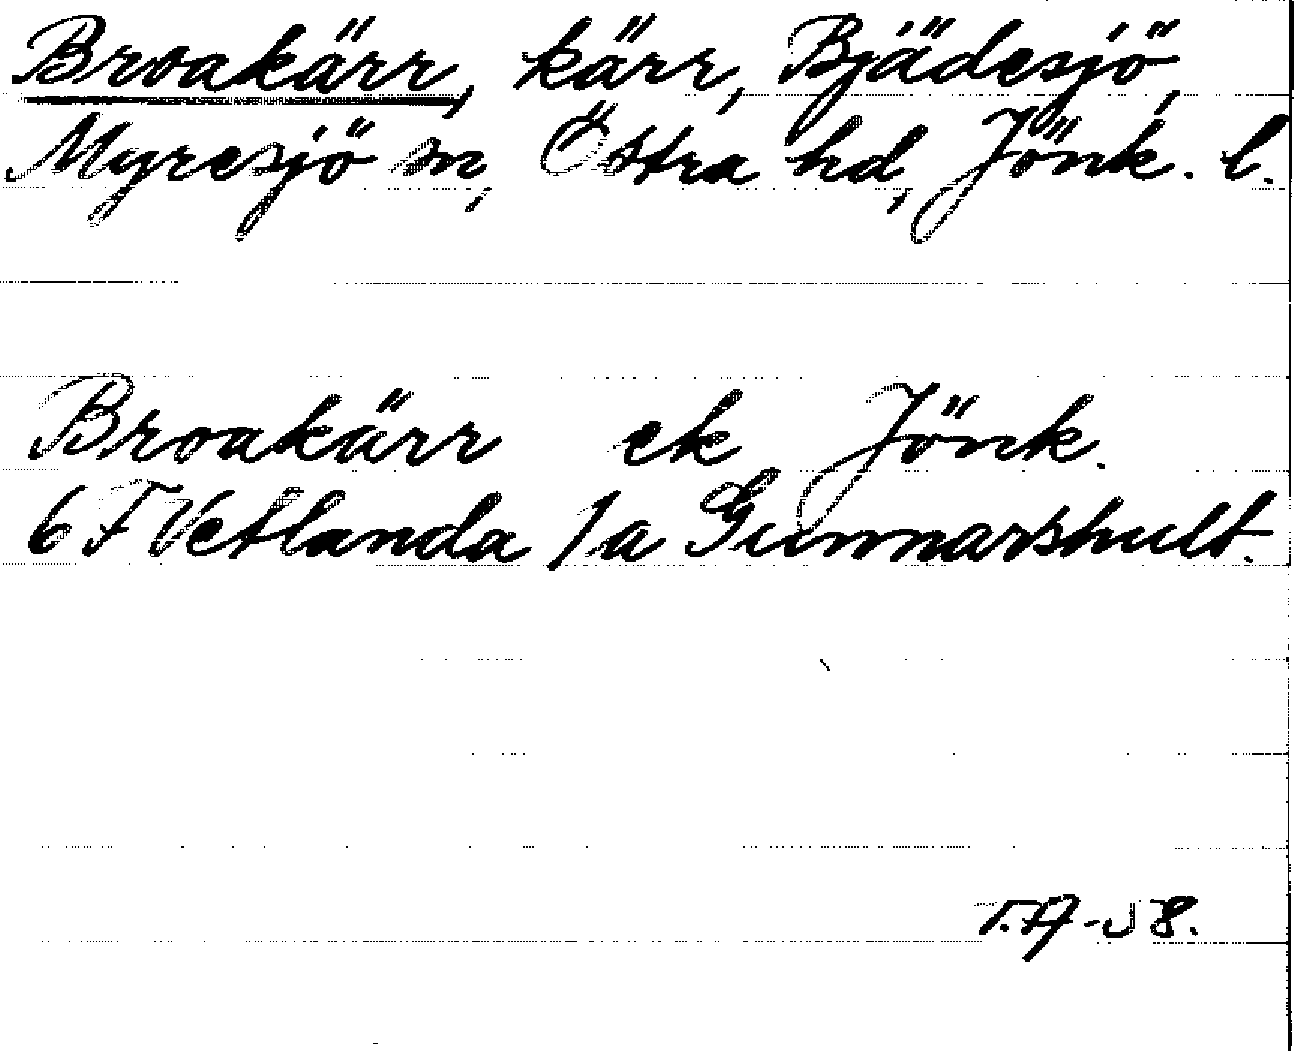 Broakärr, kärr, Bjädesjö,
Myresjö sn, Östra hd, Jönk. l.
Broakärr ek Jönk.
6 F Vetlanda 1a Gunnarshult.